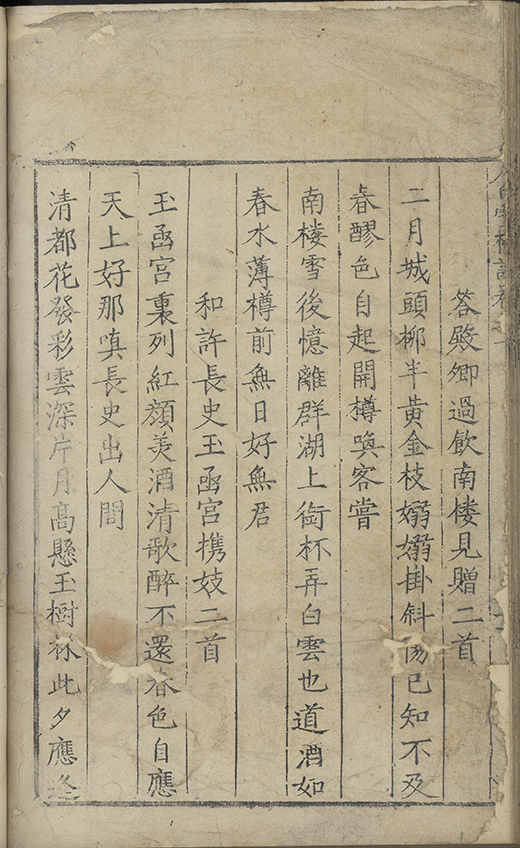 答殿卿過飲南楼見贈二首
二月城頭柳半黄金枝嫋嫋掛斜陽已知不及
春醪色自起開樽喚客嘗
南楼雪後憶離群湖上銜杯弄白雲也道酒如
春水薄樽前無日好無君
和許長史玉函宮携妓二首
玉函宮裏列紅顔美酒清歌醉不還春色自應
天上好那嗔長史出人間
清都花發彩雲深片月高懸玉樹林此夕應逢